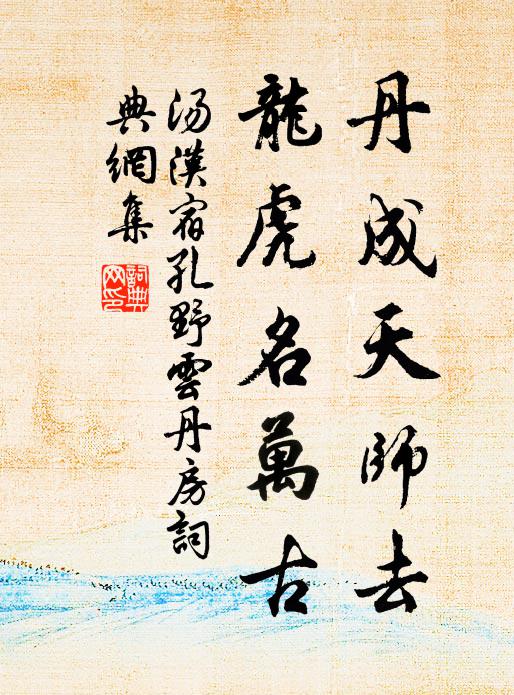 丹成天師去
龍虎名萬古
汤漢宿孔野雲丹房詞
典網集
詞典
网印